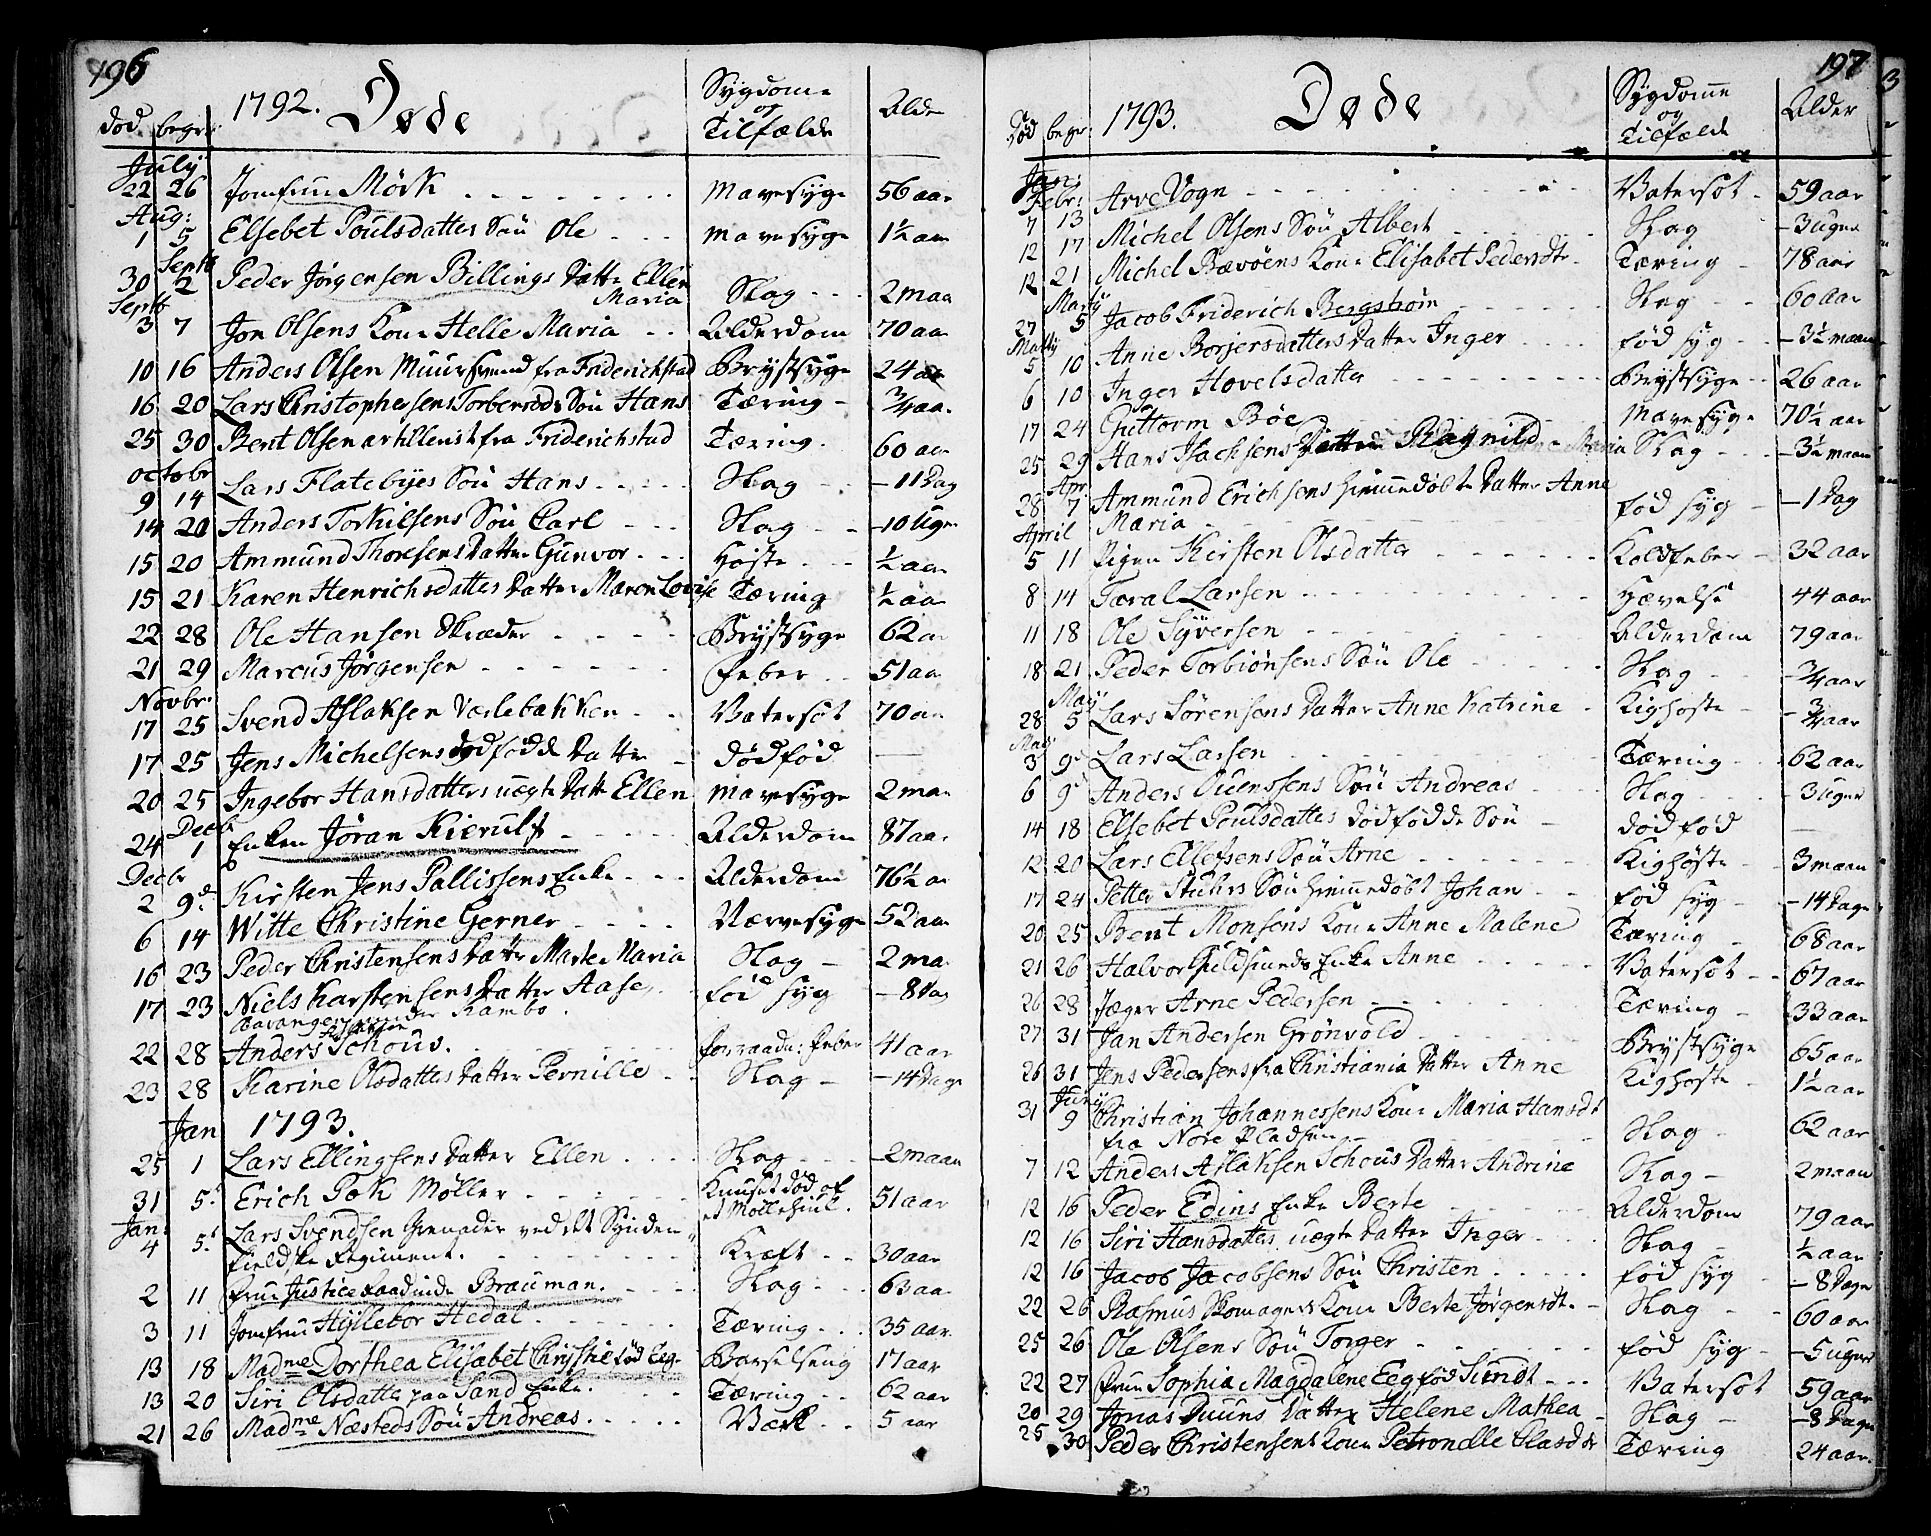 196
1792. Døde
død begr: Sygdome og Tilfælde Alder
July
22 26 Jomfrue Mörk Mavesyge 56 aar
Aug:
1 5 Elsebet Poulsdatters Sön Ole Mavesyge 1½ aar
Septb
30 2 Peder Jörgensen Billings Datter Ellen Maria Slag 2 maa
Septb
3 7 Jon Olsens Kone Helle Maria Alderdom 70 aar
10 16 Anders Olsen Muursvend fra Friderichstad Brystsyge 24 aar
16 20 Lars Christophersens Torberröds Sön Hans Tæring ¾ aar
25 30 Bent Olsen artillerist fra Friderichstad Tæring 60 aar
octobr
9 14 Lars Flatebyes Sön Hans Slag 11 Dag
14 20 Anders Torkilsens Sön Carl Slag 10 Uger
15 20 Ammund Thoresens Datter Gunvor Hoste ½ aar
15 21 Karen Henrichsdatters Datter Maren Lovise Tæring ½ aar
22 28 Ole Hansen Skræder Brystsyge 62 aar
21 29 Marcus Jörgensen Feber 51 aar
Novbr
17 25 Svend Aslaksen Værlebakken Vatersot 70 aar
17 25 Jens Michelsens dødfödde Datter dödföd
20 25 Ingebor Hansdatters uægte Datter Ellen Mavesyge 2 maa
Decb
24 1 Enken Jöran Kierulf Alderdom 87 aar
Decbr
2 9d Kirsten Jens Pallissens Enke Alderdom 76½ aar
6 14 Witte Christine Gerner Nervesyge 52 aar
16 23 Peder Christensens Datter Marte Maria Slag 2 maa
17 23 Niels Karstensens Datter Aase föd syg 8 Dag
under Kambo
22 28 Anders Aslaksen Schous forraadn: Feber 41 aar
23 28 Karine Olsdatters Datter Pernille Slag 14 Dage
Jan 1793.
25 1 Lars Ellingsens Datter Ellen Slag 2 maan
31 5 Erich Pok Möller Knuset död af et Möllehiul 51 aar
Jan:
4 5 Lars Svendsen Grenader ved det Synden
fieldske Regiment. Kræft 30 aar
2 11 Frue Justiceraadinde Brauman. Slag 63 aar
3 11 Jomfrue Hyllebor Hedal Tæring 35 aar
13 18 Madme Dorthea Elisabet Chrystie föd Eeg Barselseng 17 aar
13 20 Siri Olsdatter paa Sand Enke. Tæring 62 aar
21 26 Madme Næsteds Sön Andreas Værk 5 aar
197
1793. Döde
död begr Sygdomme og Tilfælde Alder
Jan:
Febr:
7 13 Arve Vogn Vatersot 59 aar
12 17 Michel Olsens Sön Albert Slag 3 Uger
12 21 Michel Bævöens Kone Elisabet Pedersdtr Tæring 78 aar
Marty
27 5 Jacob Friderich Bergström Slag 60 aar
Marty
5 10 Anne Borjersdatters Datter Inger föd syg 3½ maan
6 10 Inger Hovelsdatter Brystsyge 26 aar
17 24 Guttorm Böe Mavesyge 70½ aar
25 29 Hans Isachsens Datter Ragnild Maria Slag 3½ maan
Apr
28 7 Ammund Erichsens hiemmedöbte Datter Anne
Maria föd syg 1 Dag
April
5 11 Pigen Kirsten Olsdatter Koldfeber 32 aar
8 14 Taral Larsen Hævelse 44 aar
11 18 Ole Syversen Alderdom 79 aar
18 21 Peder Torbiönsens Sön Ole Slag ¾ aar
May
28 5 Lars Sörensens Datter Anne Katrine Kighoste ¾ aar
May
3 9 Lars Larsen Tæring 62 aar
6 9 Anders Ouenssens Sön Andreas Slag 3 uger
14 18 Elsebet Poulsdatters dödfödde Sön död föd
12 20 Lars Ellefsens Sön Arne Kighöste 3 maan
17 24 Petter Stuhrs Sön hiemmedöbt Johan föd syg 14 Dage
20 25 Bent Monsens Kone Anne Malene Tæring 68 aar
21 26 Halvor Guldsmeds Enke Anne Vatersot 67 aar
26 28 Jæger Arne Pedersen Tæring 33 aar
27 31 Jan Andersen Grönvold Brystsyge 65 aar
26 31 Jens Pedersens fra Christiania Datter Anne Kighoste 1½ aar
Juny
31 9 Christian Johannessens Kone Maria Hansdt
fra Nore Pladsen Slag 62 aar
7 12 Anders Aslaksen Schous Datter Andrine Slag 2 maan
12 16 Peder Edins Enke Berte Alderdom 79 aar
12 16 Siri Hansdatters uægte Datter Inger Slag ½ aar
12 16 Jacob Jacobsens Sön Christen föd syg 8 Dage
22 26 Rasmus Skomagers Kone Berte Jörgensdt. Slag 60 aar
25 26 Ole Olsens Sön Torger föd syg 5 uger
22 27 Frue Sophia Magdalene Eeg föd Sundt Vatersot 59 aar
20 29 Jonas Duuns Datter Helene Mathea Slag 8 Dage
25 30 Peder Christensens Kone Petronelle Clasdtr Tæring 24 aar.